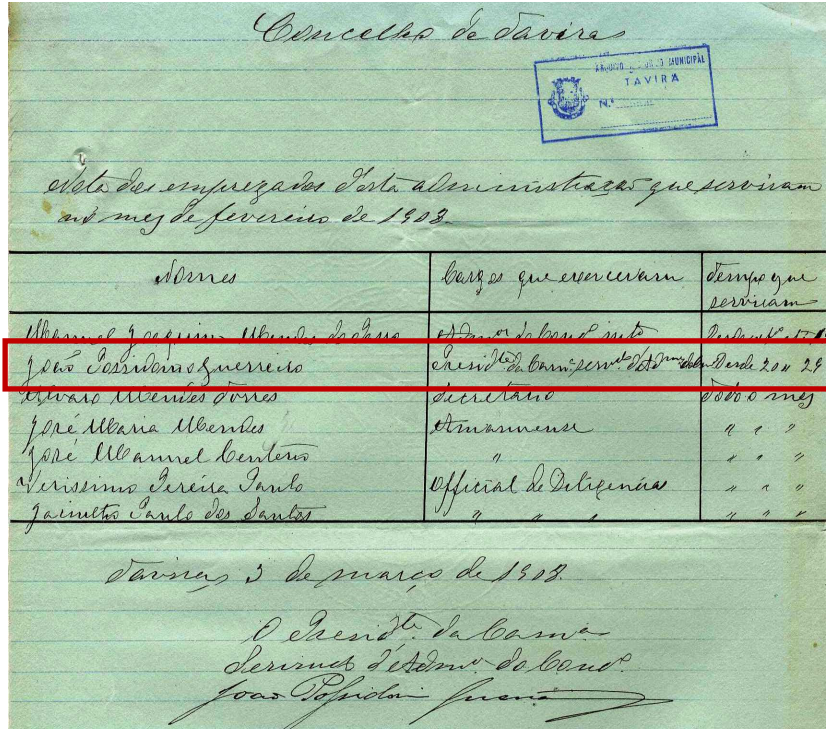 Concelho de Tavira
ARQUIVO MUNICIPAL
TAVIRA
N.º
Nota dos empregados d'esta administração que serviram
no mez de fevereiro de 1908.
Nomes Cargos que exerceram Tempo que
serviram
Manuel Joaquim Mendes do Admor do Concº
João Possidonio Guerreiro Presidte da Camª servdo d'Admor Desde 20 a 29
Alvaro Mendes Torres Secretario Todo o mez
José Maria Mendes Amanuense " " "
José Manuel Centeno " " " "
Verissimo Pereira Paulo Official de Diligencias " " "
Jacintho Paulo dos Santos " " " " " "
Tavira, 3 de março de 1908.
O Presidte da Camª
Servindo d'Admor do Concº
João Possidonio Guerreiro